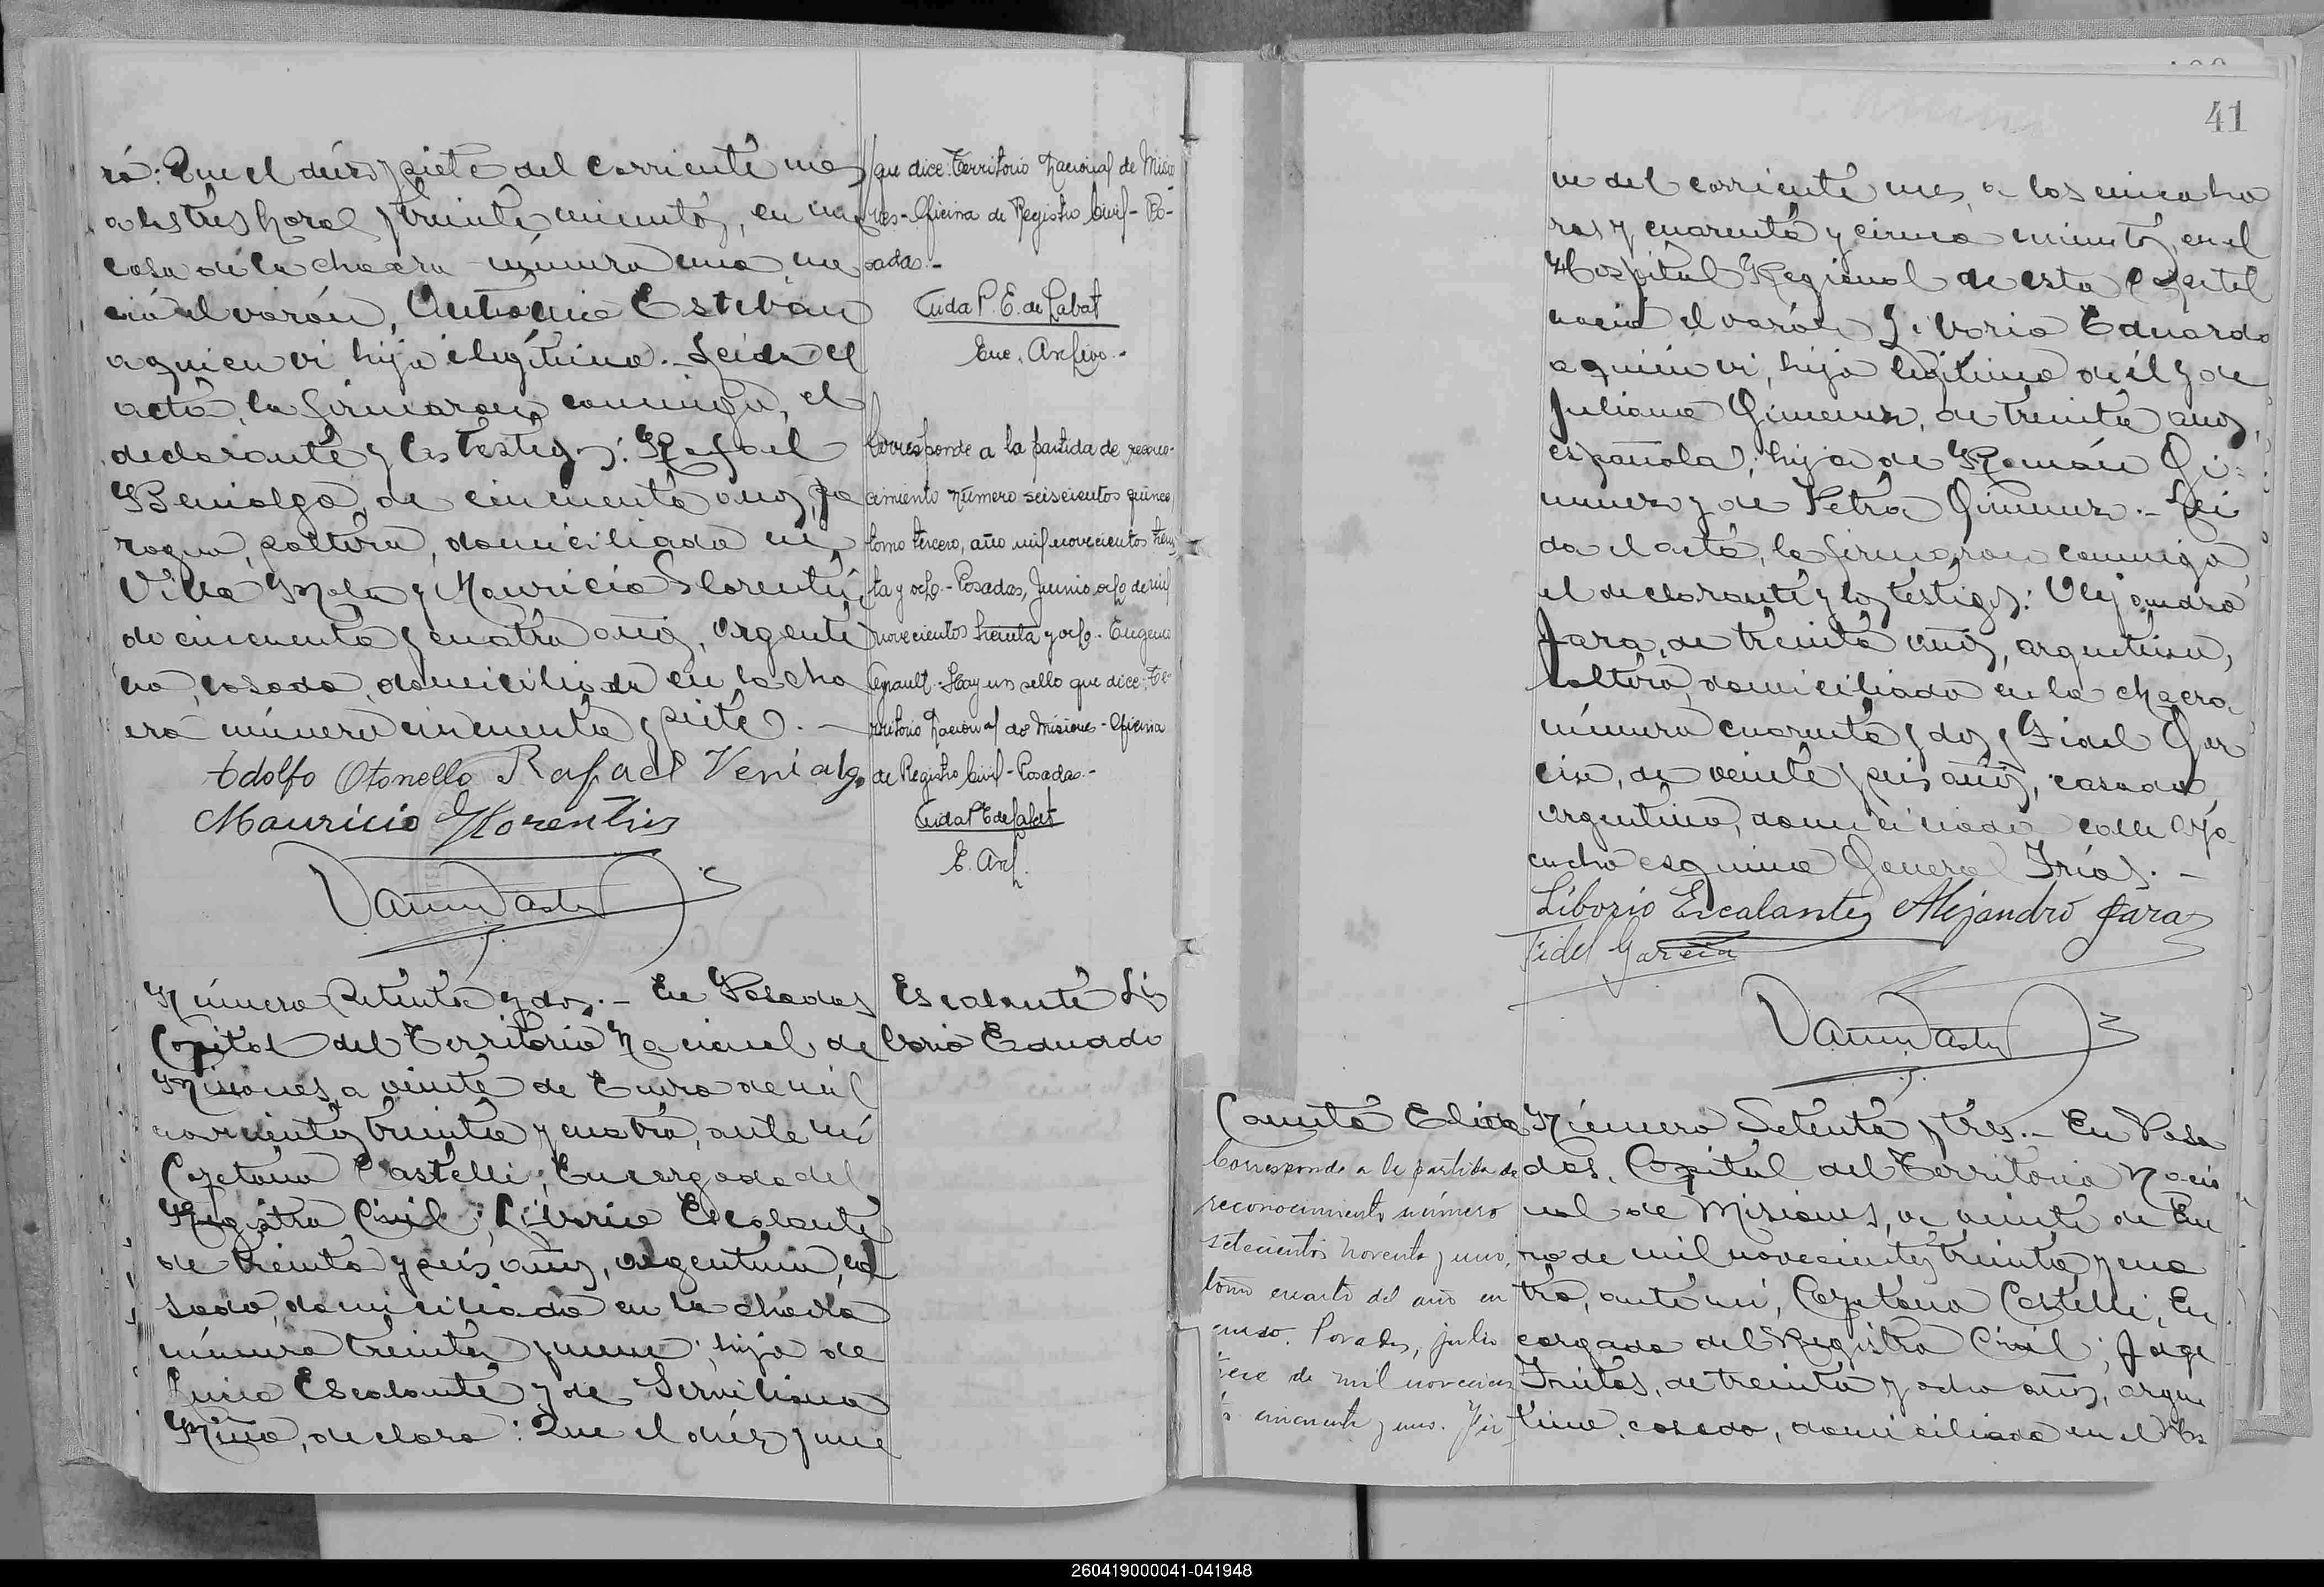 ró: Que el diez y siete del corriente mes
a las tres horas y treinta minutos, en una
casa de la chacra número uno, na
ció el varón, Antonio Esteban
a quien vi hijo ilegítimo.- Leida el
acta, la firmaron conmigo, el
declarante y los testigos: Rafael
Benialgo, de cincuenta años, pa
raguayo, soltero, domiciliado en
Villa Mola y Mauricio Florentín,
de cincuenta y cuatro años, argenti
no, casado, domiciliado en la cha
cra número cincuenta y siete.-
Adolfo Otonello Rafael Venialgo
Mauricio Florentin
que dice: Territorio Nacional de Misio
nes - Oficina de Registro Civil - Po-
sadas.-
Enc. Archivo.-
Corresponde a la partida de recono-
cimiento número seiscientos quince,
tomo tercero, año mil novecientos trein
ta y ocho.- Posadas, Junio ocho de mil
novecientos treinta y ocho. Eugenio
Hay un sello que dice: Te-
rritorio Nacional de Misiones - Oficina
de Registro Civil - Posadas.-
E. Arch.
Número Setenta y dos.- En Posadas
Capital del Territorio Nacional de
Misiones, a veinte de Enero de mil
novecientos treinta y cuatro, ante mí
Cayetano Castelli, Encargado del
Registro Civil; Liborio Escalante
de treinta y seis años, argentino, ca
sado, domiciliado en la chacra
número treinta y nueve, hijo de
Lucio Escalante y de Serviliana
Miño, declara: Que el diez y nue
Escalante Li
borio Eduardo
41
ve del corriente mes, a las cinco ho
ras y cuarenta y cinco minutos, en el
Hospital Regional de esta Capital
nació el varón Liborio Eduardo
a quien vi, hijo legítimo de él y de
Juliana Gimenez, de treinta años,
española, hija de Román Gi-
menez y de Petra Gimenez.- Lei
da el acta, la firmaron conmigo,
el declarante y los testigos: Alejandro
Jara, de treinta años, argentino,
soltero, domiciliado en la chacra
número cuarenta y dos y Fidel Gar
cia, de veinte y seis años, casado,
argentino, domiciliado calle Aya
cucho esquina General Frías.-
Liborio Escalante Alejandro Jara
Fidel García
Canteé Elias
Corresponde a la partida de
reconocimiento número
setecientos noventa y uno,
tomo cuarto del año en
curso. Posadas, julio
de mil novecien
cincuenta y uno. Fir
Número Setenta y tres.- En Posa
das, Capital del Territorio Nacio
nal de Misiones, a veinte de Ene
ro de mil novecientos treinta y cua
tro, ante mí, Cayetano Castelli, En
cargado del Registro Civil; Jorge
Frutos, de treinta y ocho años, argen
tino, casado, domiciliado en el
260419000041-041948